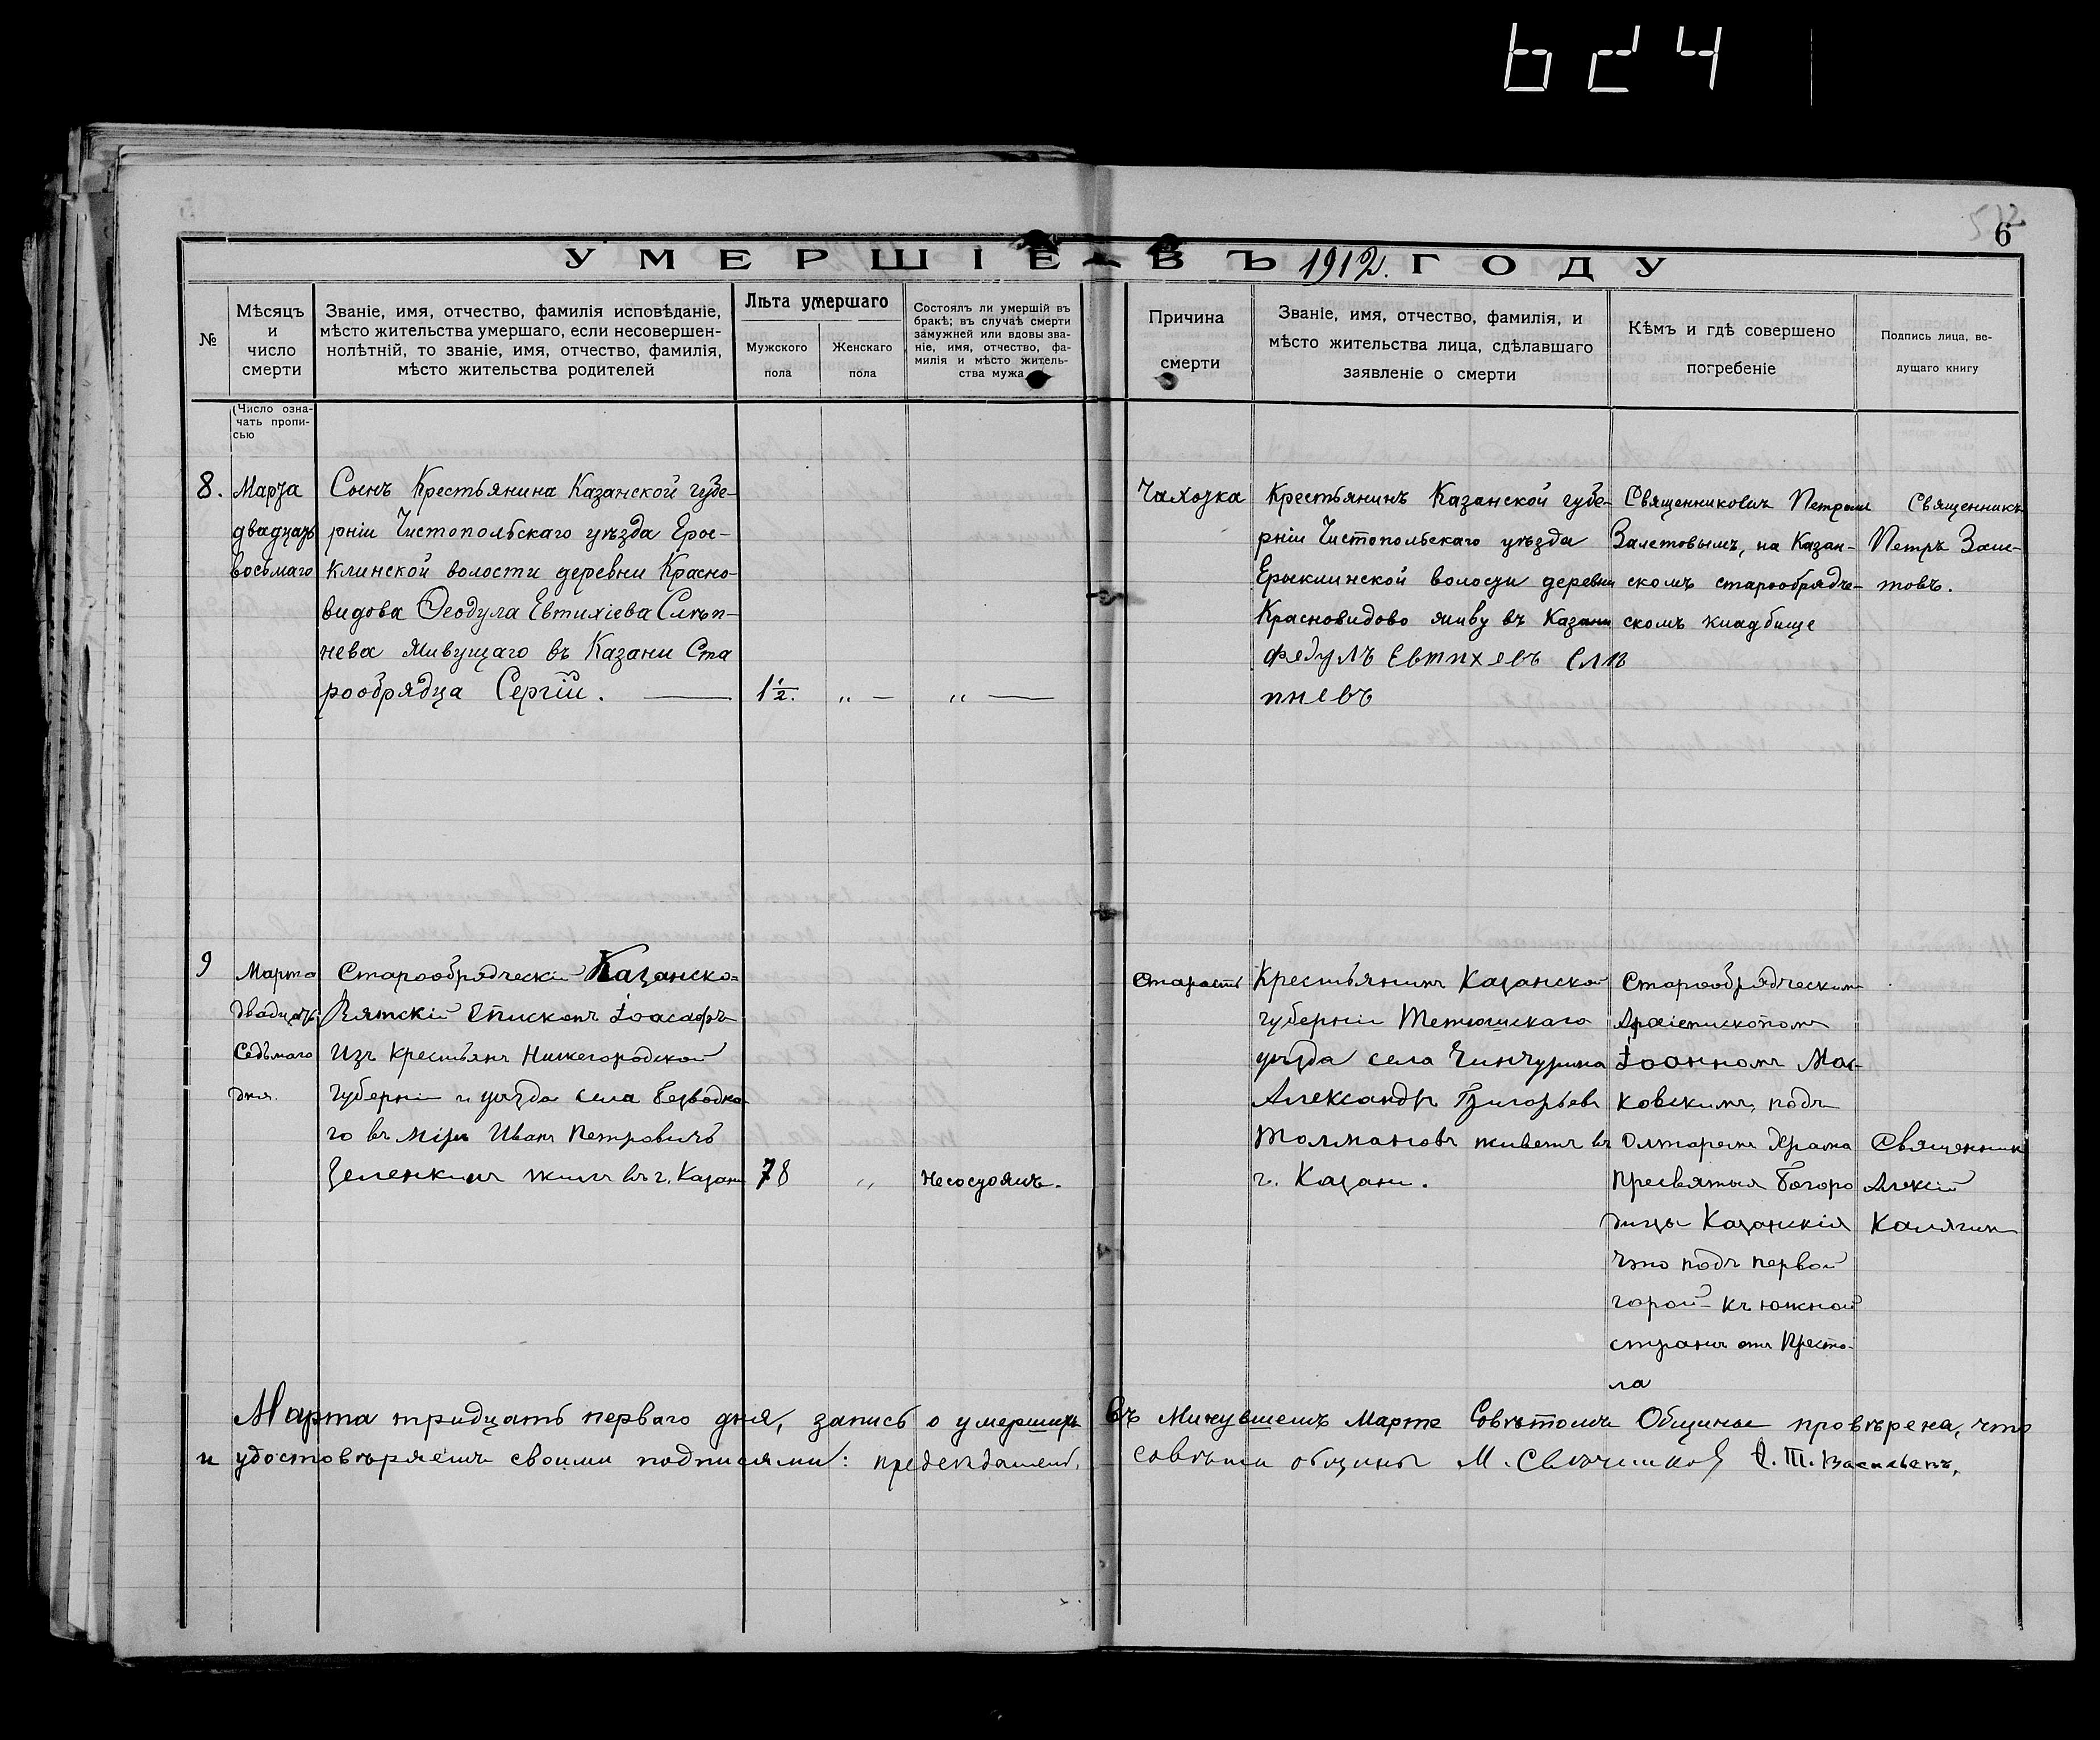 624
512
6
УМЕРШІЕ ВЪ 1912. ГОДУ
№
Мѣсяцъ
и
число
смерти
Званіе, имя, отчество, фамилія исповѣданіе,
мѣсто жительства умершаго, если несовершен-
нолѣтній, то званіе, имя, отчество, фамилія,
мѣсто жительства родителей
Лѣта умершаго
Мужского
пола
Женскаго
пола
Состоялъ ли умершій въ
бракѣ; въ случаѣ смерти
замужней или вдовы зва-
ніе, имя, отчество, фа-
милія и мѣсто житель-
ства мужа
Причина
смерти
Званіе, имя, отчество, фамилія, и
мѣсто жительства лица, сдѣлавшаго
заявленіе о смерти
Кѣмъ и гдѣ совершено
погребеніе
Подпись лица, ве-
дущаго книгу
(Число озна-
чать пропи-
сью
8.
Марта
двадцать
восьмаго
Сынъ Крестьянина Казанской губе-
рніи Чистопольскаго уѣзда Ерые-
клинской волости деревни Красно-
видова Ѳеодула Евтихіева Слѣп-
нева живущаго въ Казани Ста
рообрядца Сергій.
1 1/2.
„ —
„ —
Чахотка
Крестьянинъ Казанской губе-
рніи Чистопольскаго уѣзда
Ерыклинской волости деревни
Красновидово живу въ Казани
Федулъ Евтихевъ Слѣ
пневъ
Священникомъ Петромъ
Залетовымъ, на Казан-
скомъ старообрядче-
скомъ кладбище
Священникъ
Петръ Зале-
товъ.
9
Марта
двадцать
Седьмаго
дня.
Старообрядческій Казанско=
Вятскій Епископъ Іоасафъ
Изъ крестьянъ Нижегородской
губерніи и уѣзда села Безводна
го въ мірѣ Иванъ Петровичъ
Зеленкинъ жилъ въ г. Казани
78
„
Несостоялъ.
Старость
Крестьянинъ Казанской
губерніи Тетюшскаго
уѣзда села Чинчурина
Александръ Григорьевъ
Толмановъ живетъ въ
г. Казани.
Старообрядческимъ
Архіепископомъ
Іоанномъ Мос-
ковскимъ, подъ
Олтаремъ Храма
Пресвятыя Богоро
дицы Казанскія
что подъ первой
горой къ южной
странѣ отъ Престо-
ла
Священникъ
Алексій
Калягинъ
Марта тридцать перваго дня, запись о умершихъ въ Минувшемъ Марте Совѣтомъ Общины провѣрена, что
и удостовѣряемъ своими подписями: предсѣдатель, совѣта общины М. Свѣчниковъ Васильевъ,